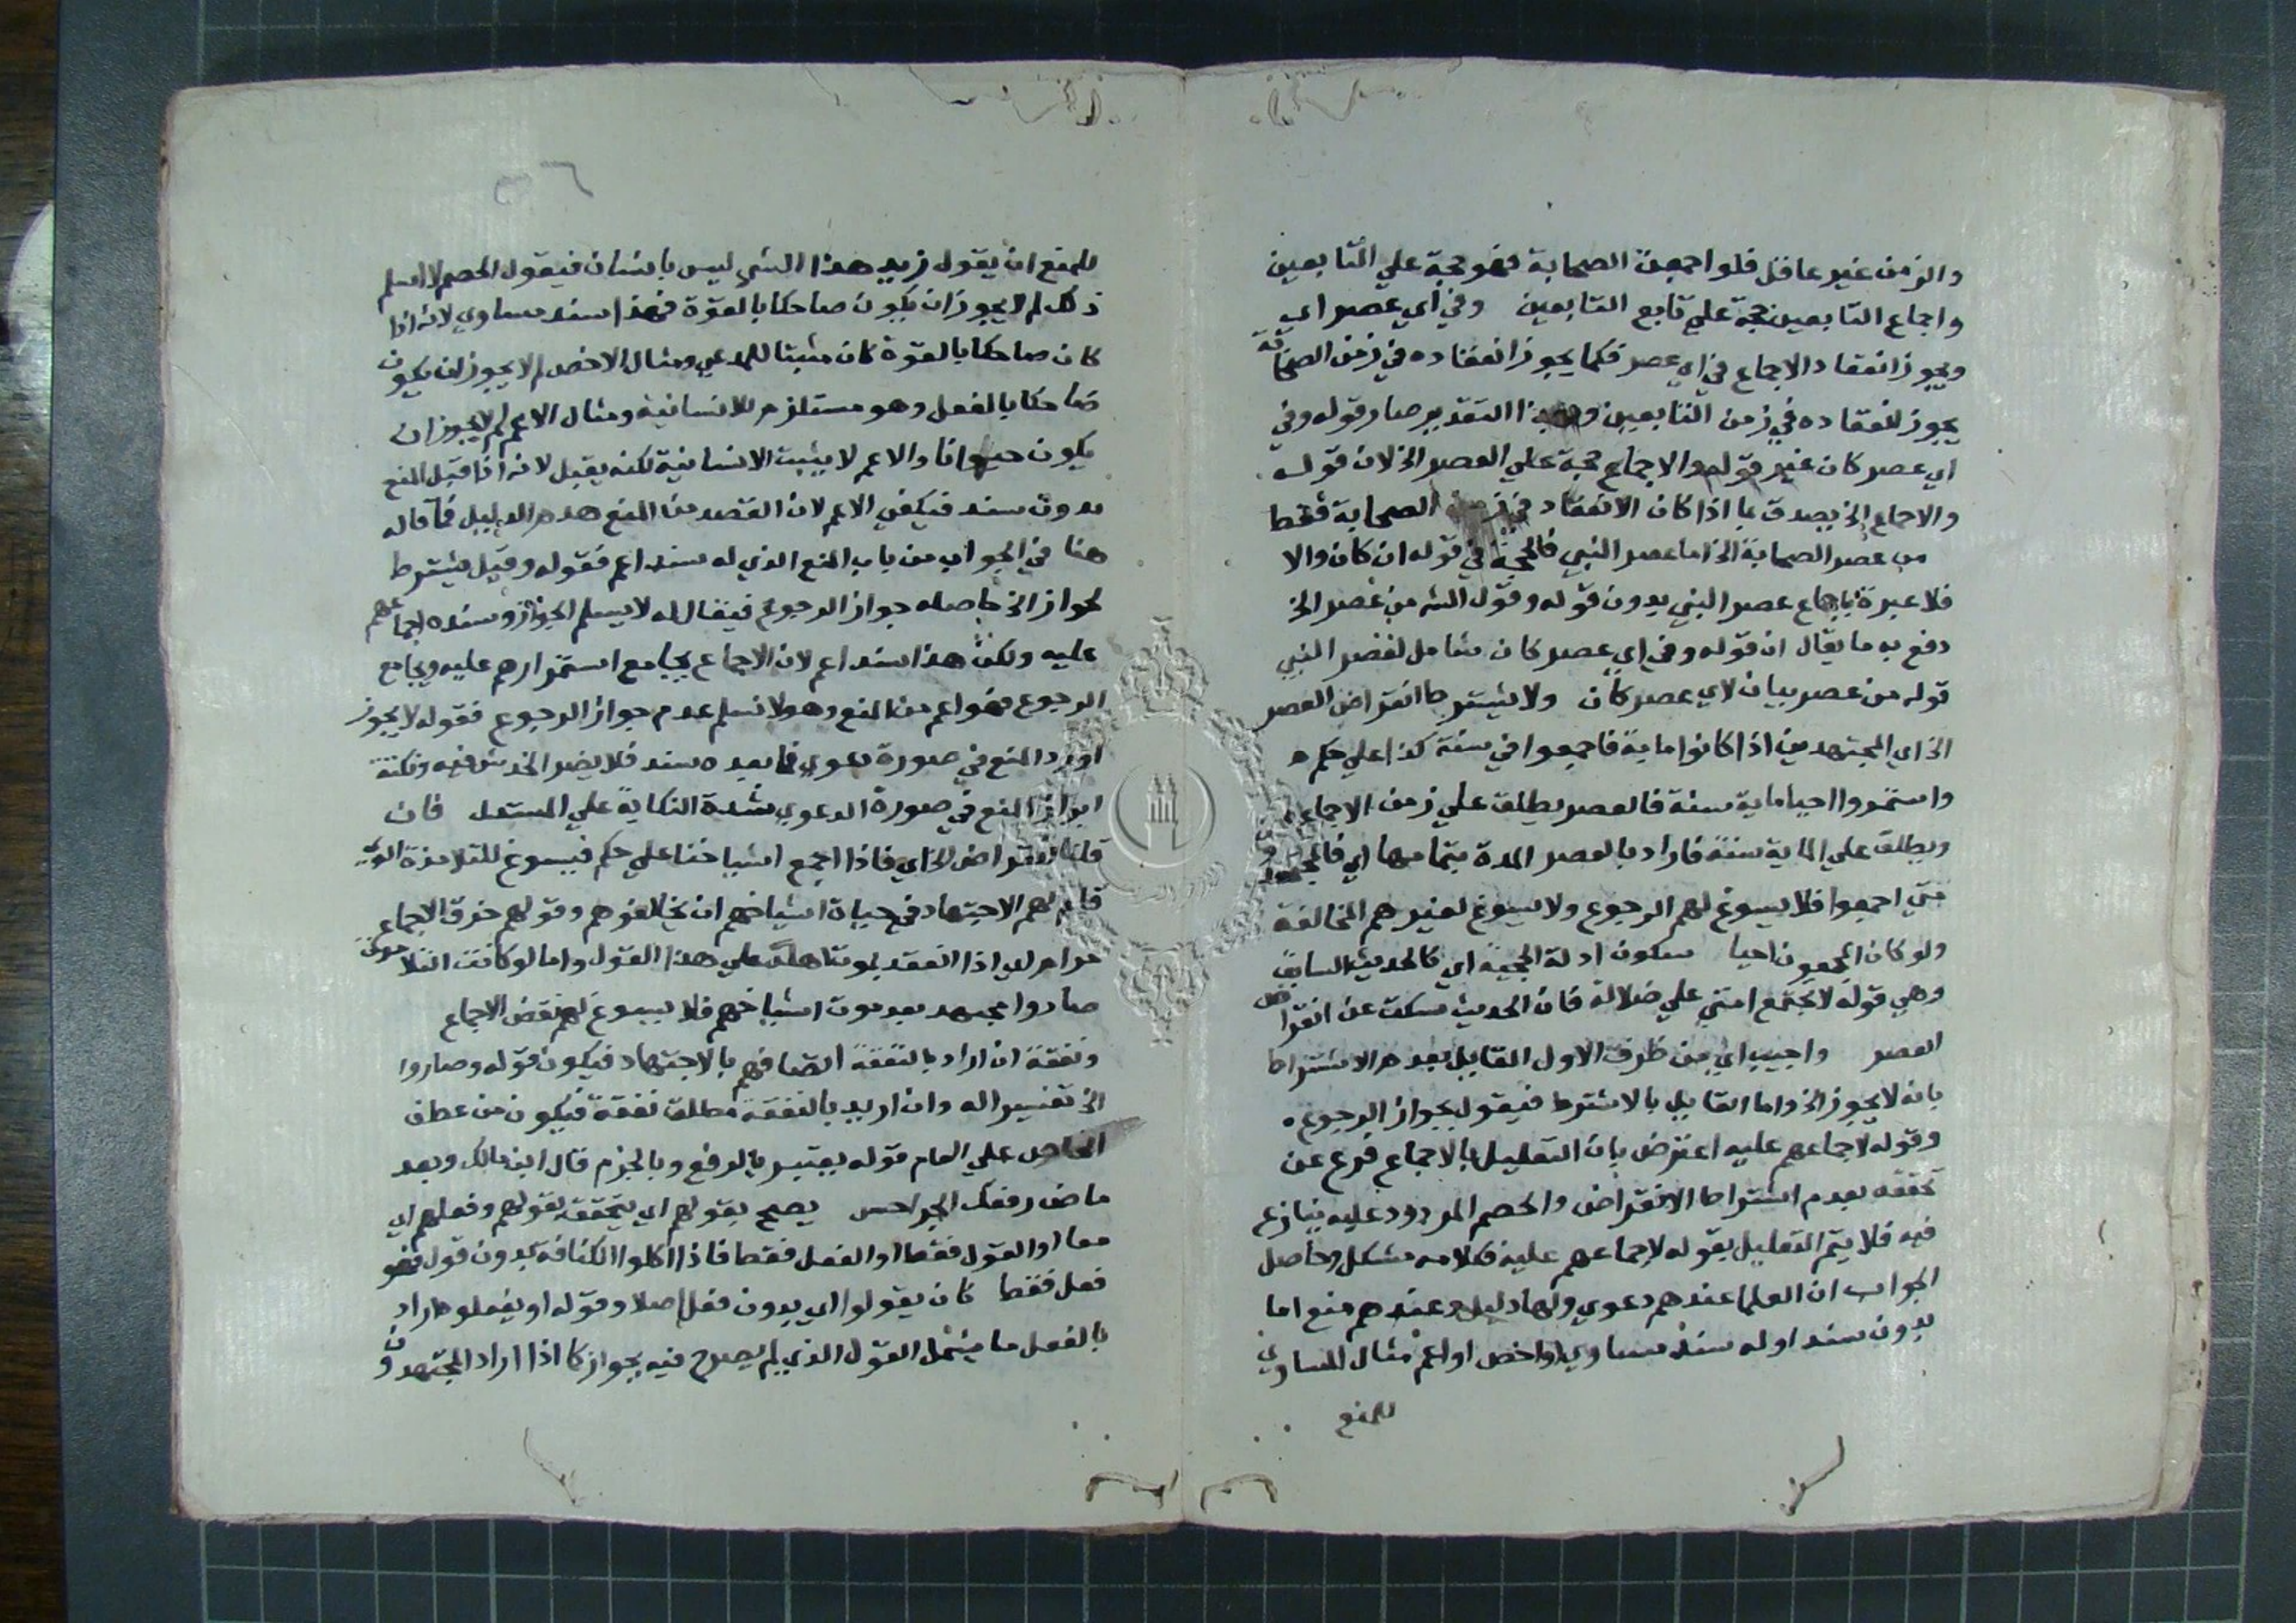 والزمن غير عاقل فلو اجمعت الصحابة فهو حجة علي التابعين
واجماع التابعين حجة علي تابع التابعين وفي اي عصر اي
ويجوز انعقاد الاجماع في اي عصر فكما يجوز انعقاده في زمن الصحابة
يجوز انعقاده في زمن التابعين وبهذا التقدير صار قوله وفي
اي عصر كان غير قوله والاجماع حجة علي العصر الخ لان قوله
والاجماع الخ يصدق بما اذا كان الانعقاد في زمن الصحابة فقط
من عصر الصحابة الخ اما عصر النبي فالحجة في قوله ان كان والا
فلا عبرة باجماع عصر النبي بدون قوله وقول الشه من عصر الخ
دفع به ما يقال ان قوله وفي اي عصر كان شامل لعصر النبي
قوله من عصر بيان لاي عصر كان ولا يشترط انقراض العصر
الخ اي المجتهدين اذا كانوا ماية فاجمعوا في سنة كذا علي حكم
واستمروا احيا ماية سنة فالعصر يطلق علي زمن الاجماع
ويطلق علي الماية سنة فاراد بالعصر المدة بتمامها اي
متي اجمعوا فلا يسوغ لهم الرجوع ولا يسوغ لغيرهم المخالفة
ولو كان المجمعون احيا سكوت ادلة الحجية اي كالحديث السابق
وهي قوله لا تجتمع امتي علي ضلالة فان الحديث سكت عن انقراض
العصر واجيب اي من طرف الاول القايل بعدم الاشتراط
بانه لا يجوز الخ واما القايل بالاشترط فيقول بجواز الرجوع
وقوله لاجماعهم عليه اعترض بان التعليل بالاجماع فرع عن
تحققه بعدم اشتراط الانقراض والخصم المردود عليه ينازع
فيه فلا يتم التعليل بقوله لاجماعهم عليه فكلامه مشكل وحاصل
الجواب ان العلما عندهم دعوي ولها دليل وعندهم منع اما
بدون سند او له سند مساوي او اخص او اعم مثال المساوي
للمنع
٣٦
للمنع ان يقول زيد هذا الشي ليس بانسان فيقول الخصم لا اسلم
ذلك لم لا يجوز ان يكون ضاحكا بالقوة فهذا سند مساوي لانه اذا
كان ضاحكا بالقوة كان مثبتا للمدعي ومثال الاخص لم لا يجوز ان يكون
ضاحكا بالفعل وهو مستلزم للانسانية ومثال الاعم لم لا يجوز ان
يكون حيوانا والاعم لا يثبت الانسانية لكنه يقبل لانه اذا قبل المنع
بدون سند فيكفي الاعم لان القصد من المنع هدم الدليل فما قاله
هنا في الجواب من باب المنع الذي له سند اعم فقوله وقيل يشترط
لجواز الخ حاصله جواز الرجوع فيقال له لا يسلم الجواز وسنده اجماعهم
عليه ولكن هذا سند اعم لان الاجماع يجامع استمرارهم عليه ويجامع
الرجوع فهو اعم من المنع وهو لا نسلم عدم جواز الرجوع فقوله لا يجوز
اورد المنع في صورة دعوي فما بعده سند فلا يضر الخدش فيه ونكتة
ابراز المنع في صورة الدعوي شدة النكاية علي المستدل فان
قلنا انقراض الخ اي فاذا اجمع اشياخنا علي حكم فيسوغ للتلامذة الذي
لهم الاجتهاد في حياة اشياخهم ان يخالفوهم وقولهم خرق الاجماع
حرام اي اذا انعقد بموت اهله علي هذا القول واما لو كانت التلامذة
صاروا مجتهد بعد موت اشياخهم فلا يسوغ لهم نقض الاجماع
وتفقه ان اراد بالتفقه اتصافهم بالاجتهاد فيكون قوله وصاروا
الخ تفسير اله وان اريد بالتفقه مطلق تفقه فيكون من عطف
الخاص علي العام قوله يعتبر بالرفع وبالجزم قال ابن مالك وبعد
ماض رفعك الجزا حسن يصح بقولهم اي يتحقق بقولهم وفعلهم اي
معا او القول فقط او الفعل فقط فاذا اكلوا الكنافة بدون قول فهو
فعل فقط كان يقولوا اي بدون فعل اصلا وقوله او يفعلو اراد
بالفعل ما يشمل القول الذي لم يصرح فيه بجواز كا اذا اراد المجتهدون